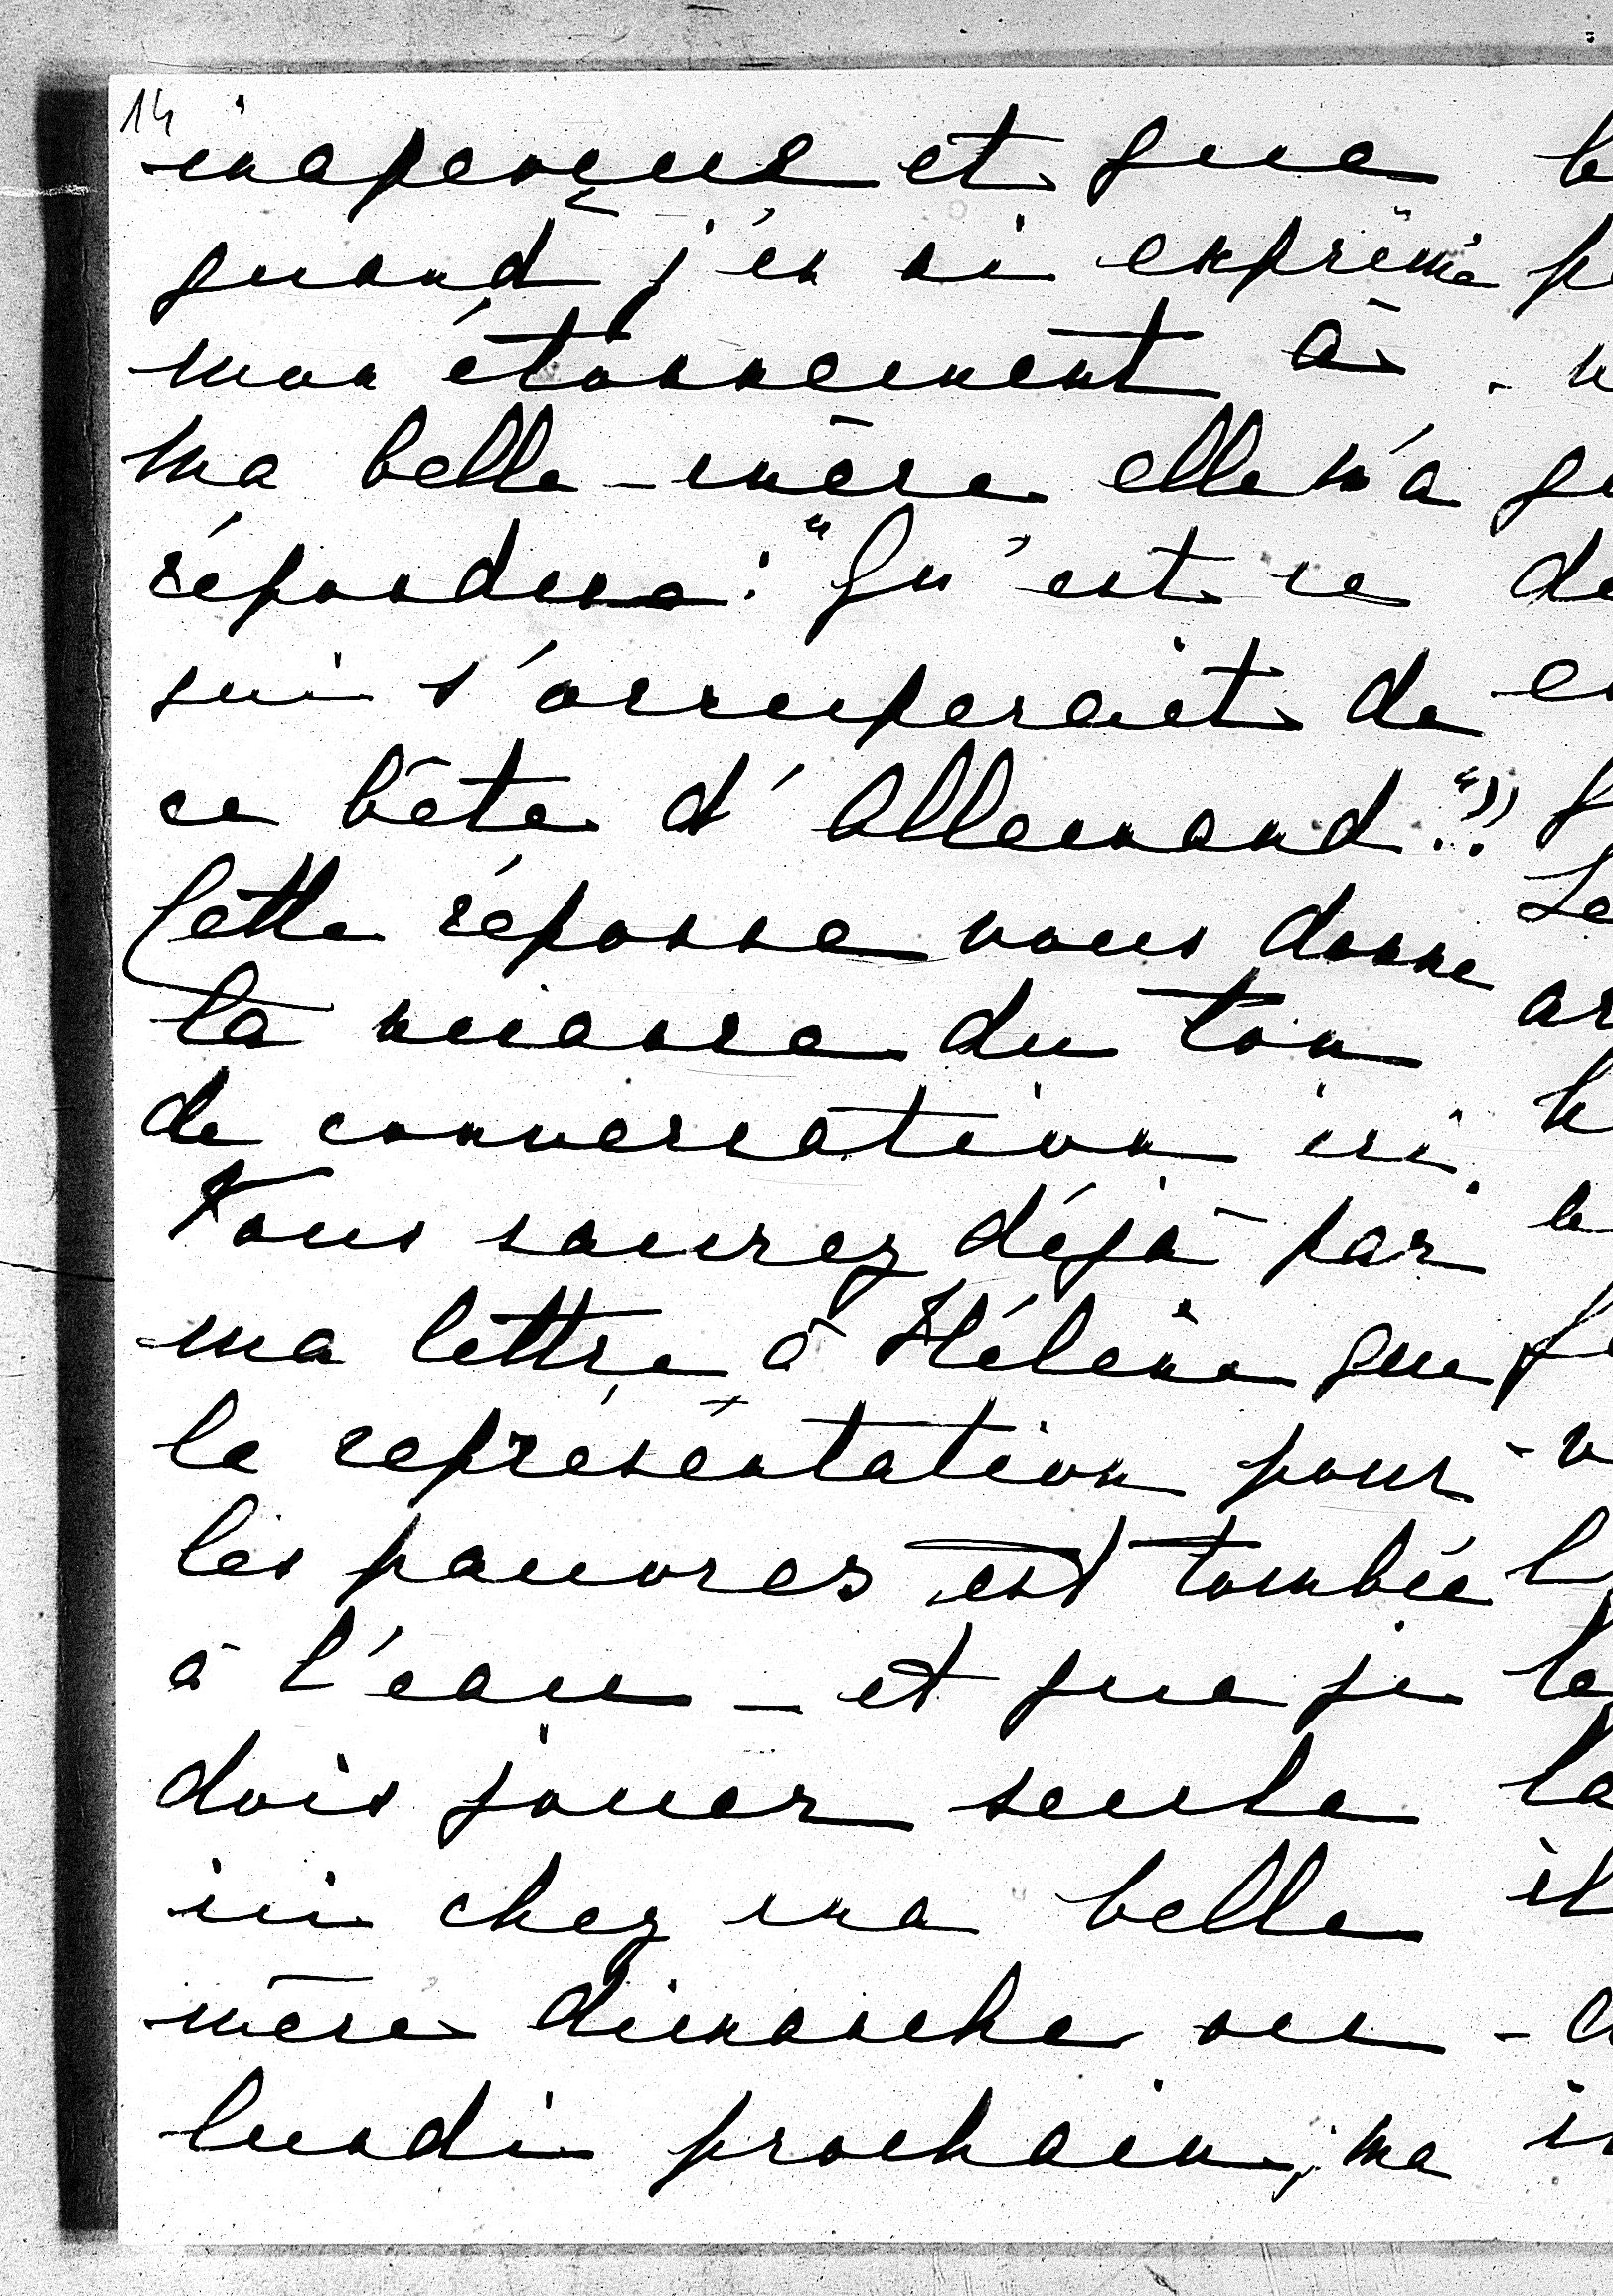 14
inaperçue et que
quand j'en ai exprimé
mon étonnement à
ma belle-mère elle m'a
répondue: "Qu'est ce
qui s'occuperait de
ce bête d'Allemand"??
Cette réponse vous donne
la nuance du ton
de conversation ici.
Vous saurez déjà par
ma lettre à Hélène que
la représentation pour
les pauvres est tombée
à l'eau – et que je
dois jouer seule
ici chez ma belle
mère dimanche ou
lundi prochain; ma